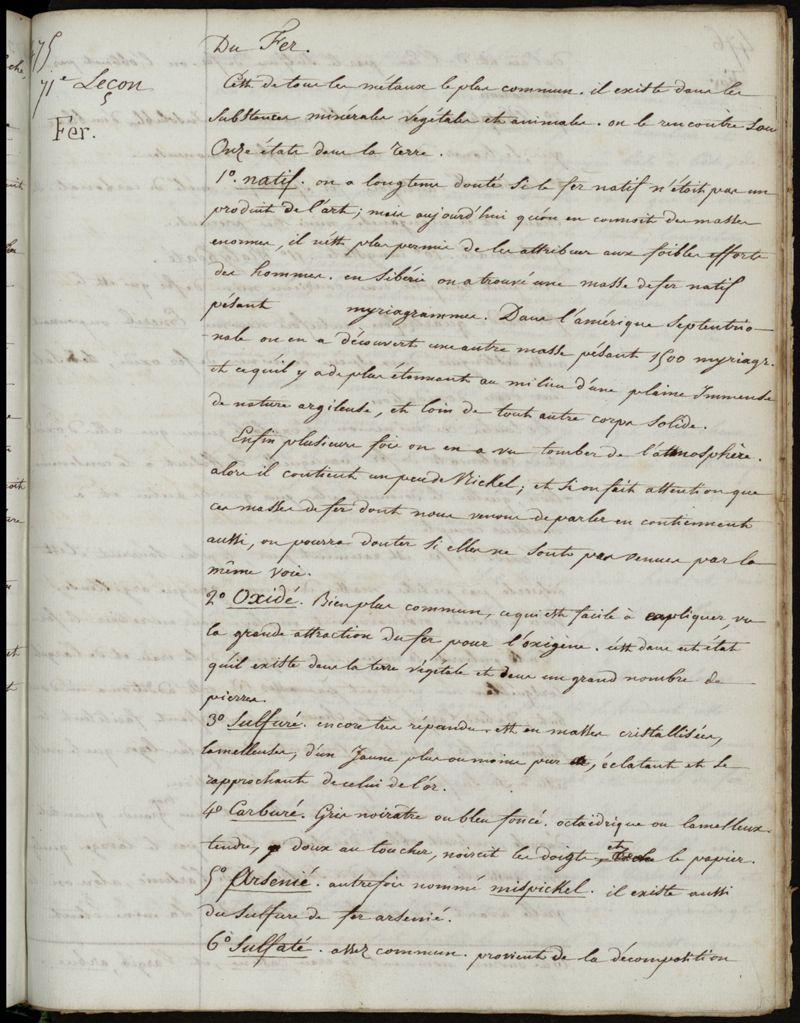 475
71e Leçon
Fer.
Du Fer.
C'est de tous les métaux le plus commun. il existe dans les
substances minérales végétales et animales. on le rencontre sous
Onze états dans la terre.
1o. natif. on a longtems douté si le fer natif n'étoit pas un
produit de l'art; mais aujourd'hui qu'on en connoit des masses
enormes, il n'est plus permis de les attribuer aux foibles efforts
des hommes. en Sibérie on a trouvé une masse de fer natif
pésant myriagrammes. Dans l'amérique septentrio-
nale on en a découvert une autre masse pésant 1500 myriagr.
et ce qu'il y a de plus étonnant au milieu d'une plaine Immense
de nature argileuse, et loin de tout autre corps solide.
Enfin plusieurs fois on en a vu tomber de l'atmosphère.
alors il contient un peu de Nickel; et si on fait attention que
ces masses de fer dont nous venons de parler en contiennent
aussi, on pourra douter si elles ne sont pas venues par la
même voie.
2o Oxidé. Bien plus commun, ce qui est facile à expliquer, vu
la grande attraction du fer pour l'oxigène. c'est dans cet état
qu'il existe dans la terre végétale et dans un grand nombre de
pierres.
3o Sulfuré. encore très répandu. est en masses cristallisées,
lamelleuses, d'un Jaune plus ou moins pur, éclatant et se
rapprochant de celui de l'or.
4o Carburé. Gris noirâtre ou bleu foncé. octaedrique ou lamelleux.
tendre, doux au toucher, noircit les doigts et le papier.
5o Arsenié. autrefois nommé mispickel. il existe aussi
du Sulfure de fer arsenié.
6o Sulfaté. assez commun. provient de la décomposition